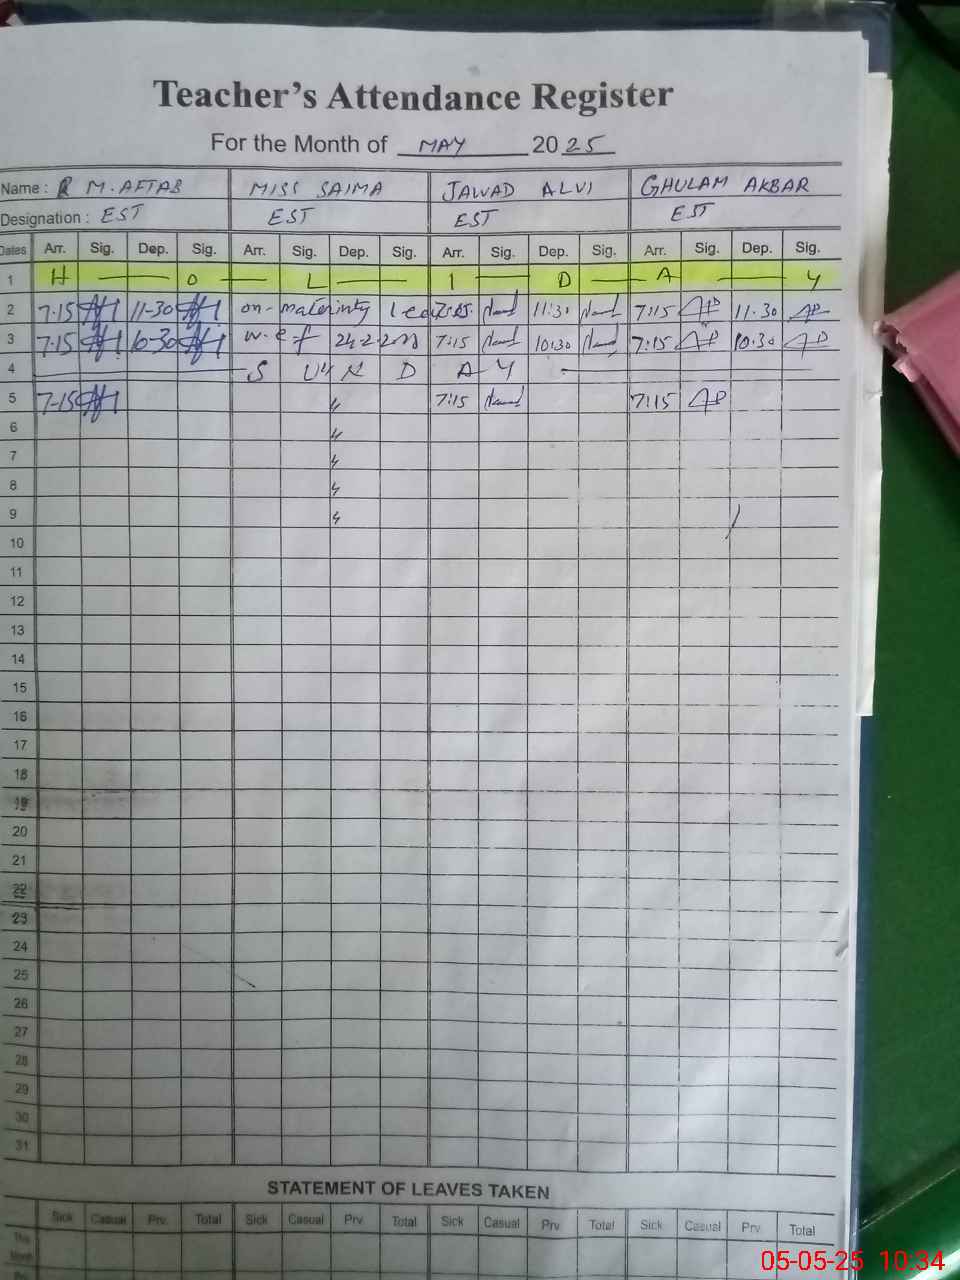 Teacher's Attendance Register
For the Month of MAY 2025
Name : M. AFTAB MISS SAIMA JAWAD ALVI GHULAM AKBAR
Designation : EST EST EST EST
Dates Arr. Sig. Dep. Sig. Arr. Sig. Dep. Sig. Arr. Sig. Dep. Sig. Arr. Sig. Dep. Sig.
1 H — O — L — I — D — A — Y
2 7.15 11-30 on-materinty 11:30 7:15 11.30
3 7:15 10-30 w.e.f 7:15 10:30 7:15 10.30
4 S U N D A Y
5 7-15 7:15 7:15
6
7
8
9
10
11
12
13
14
15
16
17
18
19
20
21
22
23
24
25
26
27
28
29
30
31
STATEMENT OF LEAVES TAKEN
Sick Casual Prv. Total Sick Casual Prv Total Sick Casual Prv Total Sick Casual Prv. Total
This
Month
05-05-25 10:34